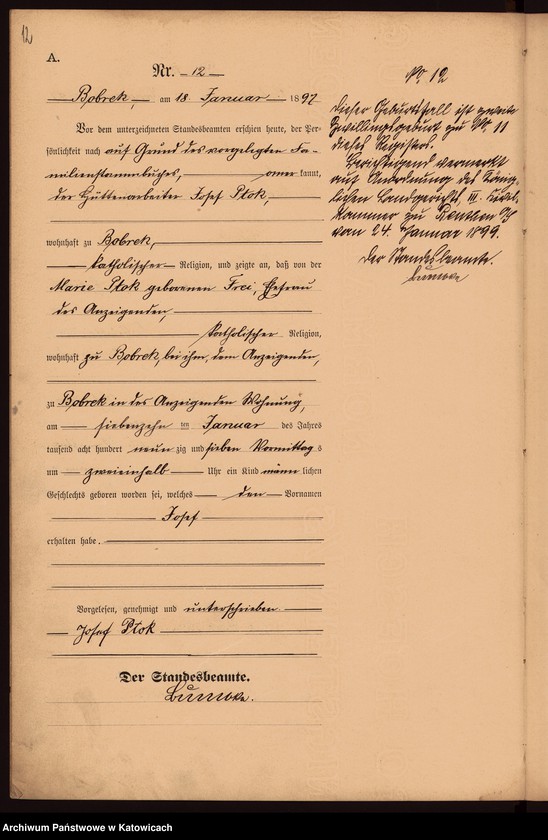 12
A.
Nr. 12
Bobrek, am 18. Januar 1897
Vor dem unterzeichneten Standesbeamten erschien heute, der Per-
sönlichkeit nach auf Grund des vorgelegten Fa-
milienstammbuches, anerkannt,
der Hüttenarbeiter Josef Ptok,
wohnhaft zu Bobrek,
katholischer Religion, und zeigte an, daß von der
Marie Ptok geborenen Frei, Ehefrau
des Anzeigenden,
katholischer Religion,
wohnhaft zu Bobrek, bei ihm, dem Anzeigenden,
zu Bobrek in des Anzeigenden Wohnung,
am siebenzehn ten Januar des Jahres
tausend acht hundert neun zig und sieben Vormittag s
um zweieinhalb Uhr ein Kind männ lichen
Geschlechts geboren worden sei, welches den Vornamen
Josef
erhalten habe.
Vorgelesen, genehmigt und unterschrieben.
Josef Ptok
Der Standesbeamte.
No 12
Dieser Geburtsfall ist zweite
Zwillingsgeburt zu No 11
dieses Registers.
Berichtigend vermerkt
auf Anordnung des König-
lichen Landgerichts, III. Civil-
kammer zu Beuthen O/S
vom 24. Januar 1899.
Der Standesbeamte.
Archiwum Państwowe w Katowicach